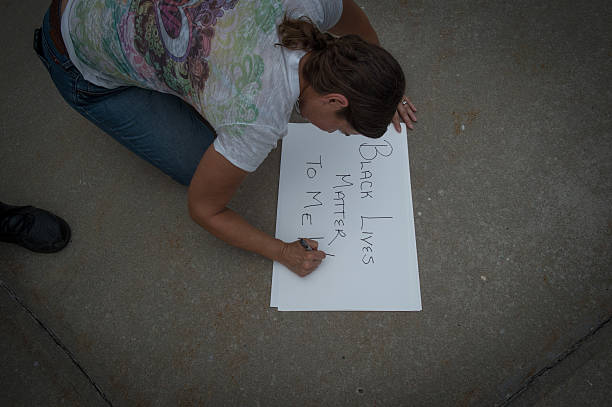 BLACK LIVES
MATTER
TO ME